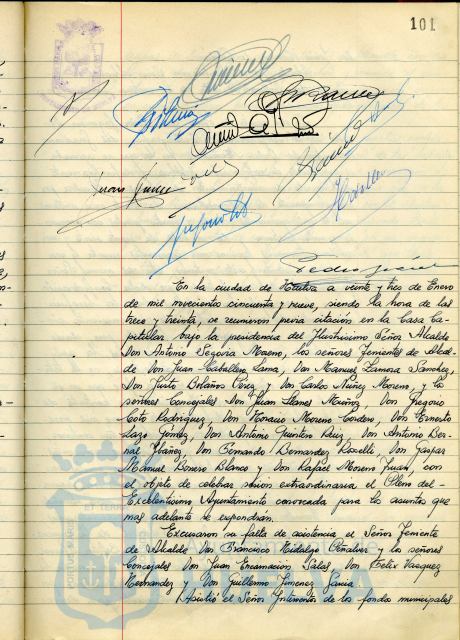 101
Pedro
En la ciudad de Huelva a veinte y tres de Enero
de mil novecientos cincuenta y nueve, siendo la hora de las
trece y treinta, se reunieron previa citación en la Casa Ca-
pitular bajo la presidencia del Ilustrísimo Señor Alcalde
Don Antonio Segovia Moreno, los señores Tenientes de Alcal-
de Don Juan Caballero Lama, Don Manuel Zamora Sánchez,
Don Justo Bolaños Pérez y Don Carlos Núñez Moreno, y los
señores Concejales Don Juan Llanes Muñoz, Don Gregorio
Coto Rodríguez, Don Horacio Moreno Cordero, Don Ernesto
Lazo Gómez, Don Antonio Quintero Ruiz, Don Antonio Ber-
nal Ibáñez, Don Fernando Bernardez Roselli, Don Gaspar
Manuel Bonero Blanco y Don Rafael Moreno Juan, con
el objeto de celebrar sesión extraordinaria el Pleno del
Excelentísimo Ayuntamiento convocada para los asuntos que
mas adelante se expondrán.
Excusaron su falta de asistencia el Señor Teniente
de Alcalde Don Francisco Hidalgo Peñalver y los señores
Concejales Don Juan Encarnación Salas, Don Félix Vazquez
Hernandez y Don Guillermo Jimenez García.
Asistió el Señor Interventor de los fondos municipales